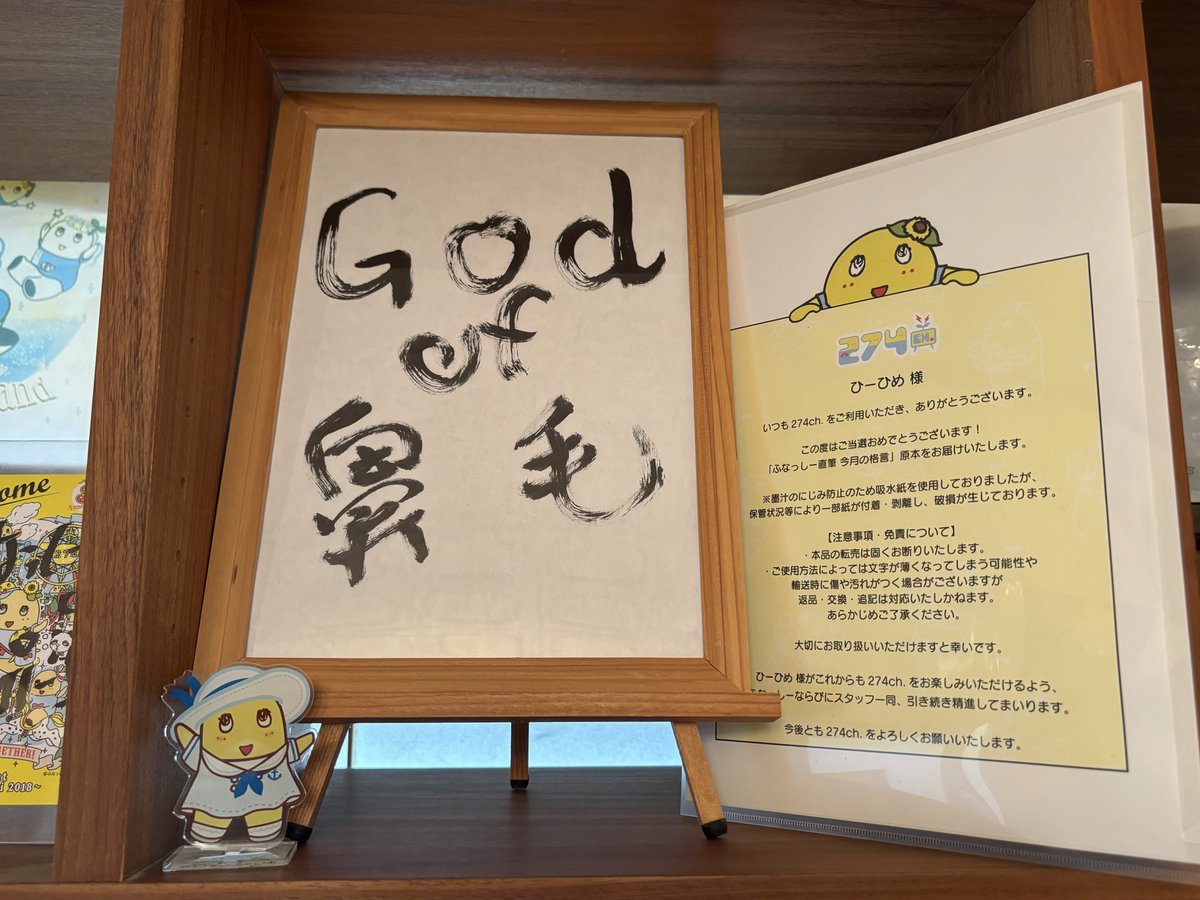 God
of
鼻毛
274CH.
ひーひめ 様
いつも 274ch. をご利用いただき、ありがとうございます。
この度はご当選おめでとうございます！
「ふなっしー直筆 今月の格言」原本をお届けいたします。
※墨汁のにじみ防止のため吸水紙を使用しておりましたが、
保管状況等により一部紙が付着・剥離し、破損が生じております。
【注意事項・免責について】
・本品の転売は固くお断りいたします。
・ご使用方法によっては文字が薄くなってしまう可能性や
輸送時に傷や汚れがつく場合がございますが
返品・交換・追記は対応いたしかねます。
あらかじめご了承ください。
大切にお取り扱いいただけますと幸いです。
ひーひめ 様がこれからも 274ch. をお楽しみいただけるよう、
しーならびにスタッフ一同、引き続き精進してまいります。
今後とも 274ch. をよろしくお願いいたします。
and
ome
ETHER!
2018~